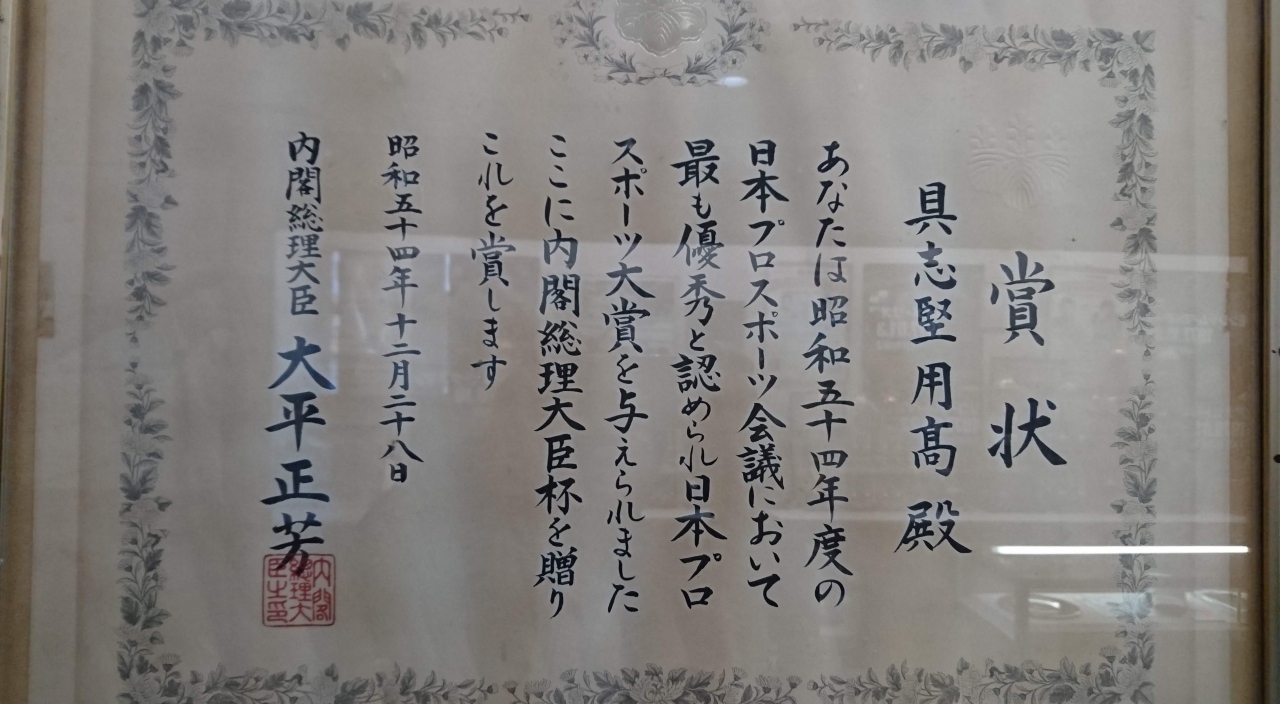 賞状
具志堅用髙 殿
あなたは昭和五十四年度の
日本プロスポーツ会議において
最も優秀と認められ日本プロ
スポーツ大賞を与えられました
ここに内閣総理大臣杯を贈り
これを賞します
昭和五十四年十二月二十八日
内閣総理大臣 大平正芳
内閣
総理大
臣之印